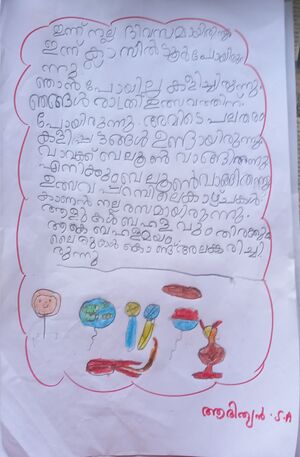 ഇന്ന് നല്ല ദിവസമായിരുന്നു
ഇന്ന് ക്ലാസിൽ ടൂർ പോയിരു
ന്നു
ഞാൻ പോയില്ല കളിച്ചിരുന്നു.
ഞങ്ങൾ രാത്രി ഉത്സവത്തിന
പോയിരുന്നു അവിടെ പലതരം
കളിപ്പാട്ടങ്ങൾ ഉണ്ടായിരുന്നു
വാവക്ക് ബലൂൺ വാങ്ങിതന്നു
എനിക്കും ബലൂൺ വാങ്ങിതന്നു
ഉത്സവ പറമ്പിലെ കാഴ്ചകൾ
കാണാൻ നല്ല രസമായിരുന്നു.
ആളുകൾ ബഹളവും തിരക്കും
ആകെ ബഹളമയം
ലൈറ്റുകൾ കൊണ്ട് അലങ്കരിച്ചി
രുന്നു
ആദിത്യൻ . S . A